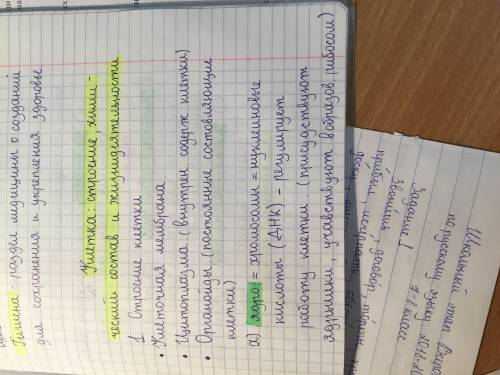 Гигиена - раздел медицины о создании
для сохранения и укрепления здоровье
Клетка: строение, хими-
ческий состав и жизнидеятельности
1 Строение клетки
• Клеточная мембрана
• Цитоплазма (внутрен содерж клетки)
• Органоиды (постоянные составляющие
клетки)
а) ядро = хромосомы = нуклеиновые
кислоты (ДНК) - регулирует
работу клетки (присудствуют
ядрышки, учавствуют в образов. рибосом)
Школьный этап
по русскому языку
7-8 класс
Задание 1